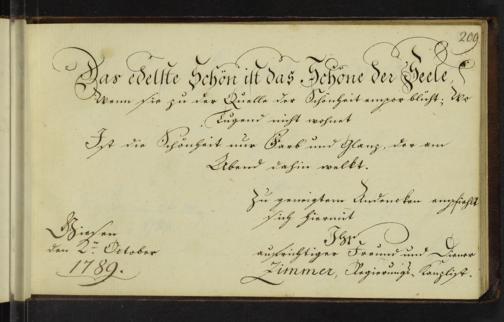 209
Das edelste Schön ist das Schöne der Seele,
Wenn sie zu der Quelle der Schönheit empor blickt; Wo
Tugend nicht wohnet
Ist die Schönheit nur Farb und Glanz, der am
Abend dahin welkt.
Zu geneigtem Andencken empfiehlt
sich hiermit
Ihr
aufrichtiger Freund und Diener
Zimmer, Regierungs-Kanzlist.
Giesen
den 2. October
1789.